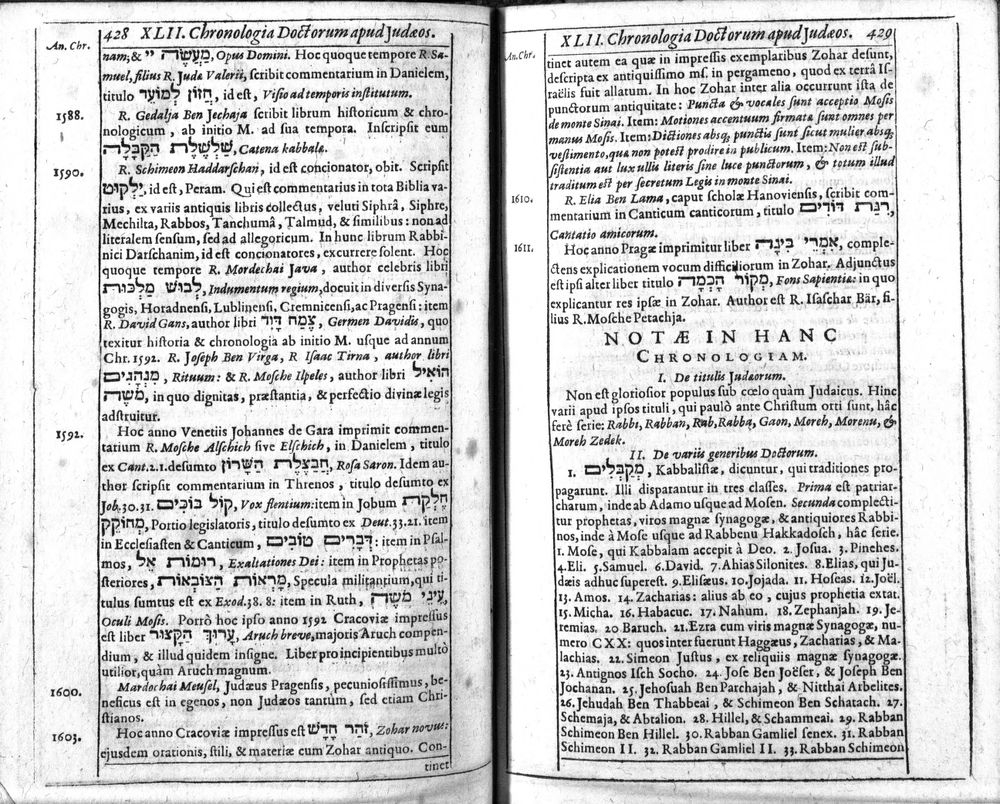 428 XLII. Chronologia Doctorum apud Judæos.
An. Chr.
nam; & מַעֲשֵׂה יי, Opus Domini. Hoc quoque tempore R. Sa-
muel, filius R. Judæ Valerii, scribit commentarium in Danielem,
titulo חֲזוֹן לְמוֹעֵד, id est, Visio ad temporis institutum.
1588. R. Gedalja Ben Jechaja scribit librum historicum & chro-
nologicum, ab initio M. ad sua tempora. Inscripsit eum
שַׁלְשֶׁלֶת הַקַּבָּלָה, Catena kabbalæ.
1590. R. Schimeon Haddarschan, id est concionator, obit. Scripsit
יַלְקוּט, id est, Peram. Qui est commentarius in tota Biblia va-
rius, ex variis antiquis libris collectus, veluti Siphrâ, Siphre,
Mechilta, Rabbos, Tanchumâ, Talmud, & similibus: non ad
literalem sensum, sed ad allegoricum. In hunc librum Rabbi-
nici Darschanim, id est concionatores, excurrere solent. Hoc
quoque tempore R. Mordechai Java, author celebris libri
לְבוּשׁ מַלְכוּת, Indumentum regium, docuit in diversis Syna-
gogis, Horadnensi, Lublinensi, Cremnicensi, ac Pragensi: item
R. David Gans, author libri צֶמַח דָּוִד, Germen Davidis, quo
texitur historia & chronologia ab initio M. usque ad annum
Chr. 1592. R. Joseph Ben Virga, R Isaac Tirna, author libri
מִנְהָגִים, Rituum: & R. Mosche Ilpeles, author libri הוֹאִיל
מֹשֶׁה, in quo dignitas, præstantia, & perfectio divinæ legis
adstruitur.
1592. Hoc anno Venetiis Johannes de Gara imprimit commen-
tarium R. Mosche Alschich sive Elschich, in Danielem, titulo
ex Cant. 2. 1. desumto חֲבַצֶּלֶת הַשָּׁרוֹן, Rosa Saron. Idem au-
thor scripsit commentarium in Threnos, titulo desumto ex
Job. 30. 31. קוֹל בּוֹכִים, Vox flentium: item in Jobum חֶלְקַת
מְחוֹקֵק, Portio legislatoris, titulo desumto ex Deut. 33. 21. item
in Ecclesiasten & Canticum, דְּבָרִים טוֹבִים: item in Psal-
mos, רוֹמוֹת אֵל, Exaltationes Dei: item in Prophetas po-
steriores, מַרְאוֹת הַצּוֹבְאוֹת, Specula militantium, qui ti-
tulus sumtus est ex Exod. 38. 8: item in Ruth, עֵינֵי מֹשֶׁה,
Oculi Mosis. Porrò hoc ipso anno 1592 Cracoviæ impressus
est liber עָרוּךְ הַקָּצוּר, Aruch breve, majoris Aruch compen-
dium, & illud quidem insigne. Liber pro incipientibus multò
utilior, quàm Aruch magnum.
1600. Mardochai Meusel, Judæus Pragensis, pecuniosissimus, be-
neficus est in egenos, non Judæos tantum, sed etiam Chri-
stianos.
1603. Hoc anno Cracoviæ impressus est זֹהַר חָדָשׁ, Zohar novus:
ejusdem orationis, stili, & materiæ cum Zohar antiquo. Con-
tinet
XLII. Chronologia Doctorum apud Judæos. 429
An. Chr.
tinet autem ea quæ in impressis exemplaribus Zohar desunt,
descripta ex antiquissimo ms. in pergameno, quod ex terrâ Is-
raëlis fuit allatum. In hoc Zohar inter alia occurrunt ista de
punctorum antiquitate: Puncta & vocales sunt acceptio Mosis
de monte Sinai. Item: Motiones accentuum firmatæ sunt omnes per
manus Mosis. Item: Dictiones absq; punctis sunt sicut mulier absq;
vestimento, quæ non potest prodire in publicum. Item: Non est sub-
sistentia aut lux ulli literis sine luce punctorum, & totum illud
traditum est per secretum Legis in monte Sinai.
1610. R. Elia Ben Lama, caput scholæ Hanoviensis, scribit com-
mentarium in Canticum canticorum, titulo רִנַּת דּוֹדִים,
Cantatio amicorum.
1611. Hoc anno Pragæ imprimitur liber אִמְרֵי בִינָה, comple-
ctens explicationem vocum difficiliorum in Zohar. Adjunctus
est ipsi alter liber titulo מְקוֹר הָכְמָה, Fons Sapientiæ: in quo
explicantur res ipsæ in Zohar. Author est R. Isaschar Bär, fi-
lius R. Mosche Petachja.
NOTÆ IN HANC
CHRONOLOGIAM.
I. De titulis Judæorum.
Non est gloriosior populus sub cœlo quàm Judaicus. Hinc
varii apud ipsos tituli, qui paulò ante Christum orti sunt, hâc
ferè serie: Rabbi, Rabban, Rab, Rabba, Gaon, Moreh, Morenu, &
Moreh Zedek.
II. De variis generibus Doctorum.
1. מְקֻבָּלִים, Kabbalistæ, dicuntur, qui traditiones pro-
pagarunt. Illi disparantur in tres classes. Prima est patriar-
charum, inde ab Adamo usque ad Mosen. Secunda complecti-
tur prophetas, viros magnæ synagogæ, & antiquiores Rabbi-
nos, inde à Mose usque ad Rabbenu Hakkadosch, hâc serie.
1. Mose, qui Kabbalam accepit à Deo. 2. Josua. 3. Pinehes.
4. Eli. 5. Samuel. 6. David. 7. Ahias Silonites. 8. Elias, qui Ju-
dæis adhuc superest. 9. Elisæus. 10. Jojada. 11. Hoseas. 12. Joël.
13. Amos. 14. Zacharias: alius ab eo, cujus prophetia extat.
15. Micha. 16. Habacuc. 17. Nahum. 18. Zephanjah. 19. Je-
remias. 20 Baruch. 21. Ezra cum viris magnæ Synagogæ, nu-
mero CXX: quos inter fuerunt Haggæus, Zacharias, & Ma-
lachias. 22. Simeon Justus, ex reliquiis magnæ synagogæ.
23. Antignos Isch Socho. 24. Jose Ben Joëser, & Joseph Ben
Jochanan. 25. Jehosuah Ben Parchajah, & Nitthai Arbelites.
26. Jehudah Ben Thabbeai, & Schimeon Ben Schatach. 27.
Schemaja, & Abtalion. 28. Hillel, & Schammeai. 29. Rabban
Schimeon Ben Hillel. 30. Rabban Gamliel senex. 31. Rabban
Schimeon II. 32. Rabban Gamliel II. 33. Rabban Schimeon